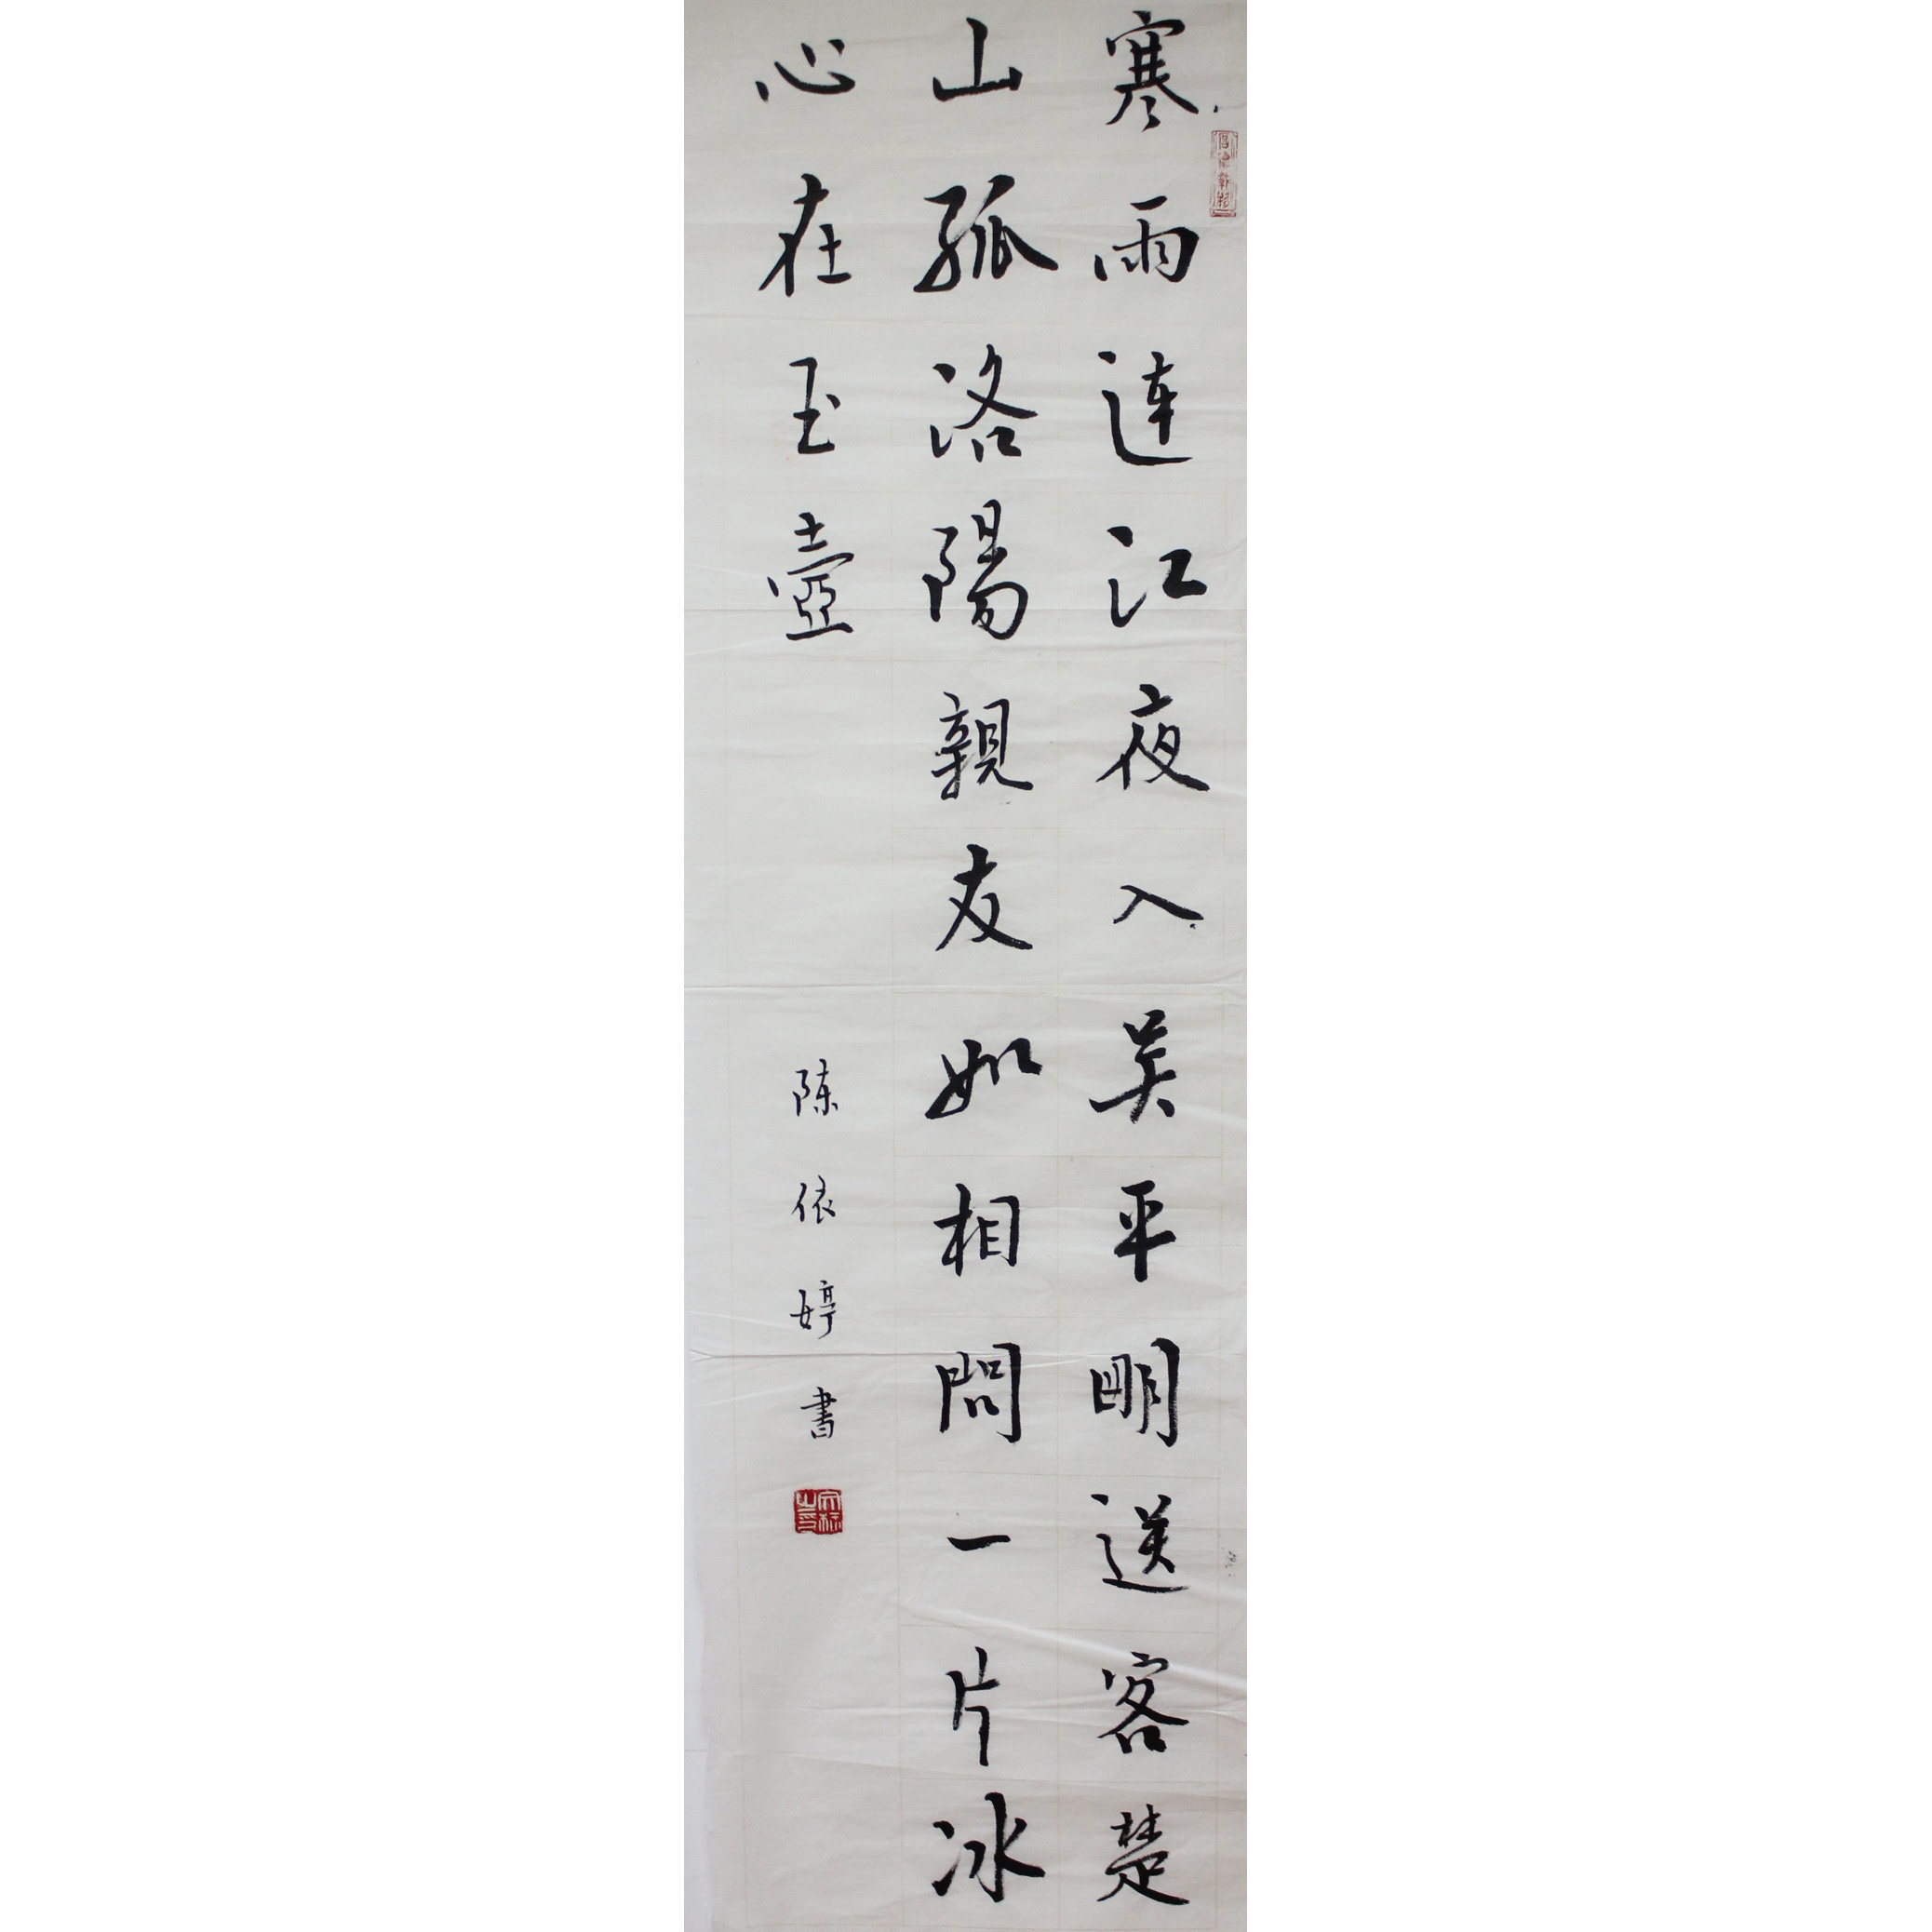 寒雨連江夜入吴平明送客楚
山孤洛陽親友如相問一片冰
心在玉壺
陈依婷書